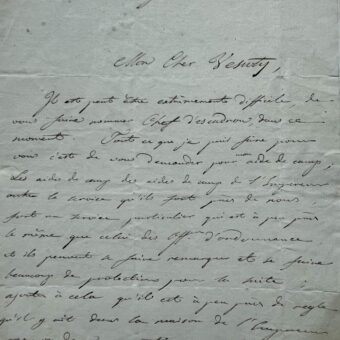 Mon Cher
Il est peut être extrêmement difficile, de
vous faire nommer Chef d'escadron, dans ce
moment. Tout ce que je puis faire pour
vous c'est de vous demander pour mon aide de camp;
Les aides de camp des aides de camp de l'Empereur
outre le service qu'ils font près de nous
font un service particulier qui est à peu près
le même que celui des Off.rs d'ordonnance
et ils peuvent se faire remarquer et se faire
beaucoup de protections pour la suite;
ajoutez à cela qu'ils est à peu près de règle
qu'il y ait dans la maison de l'Empereur